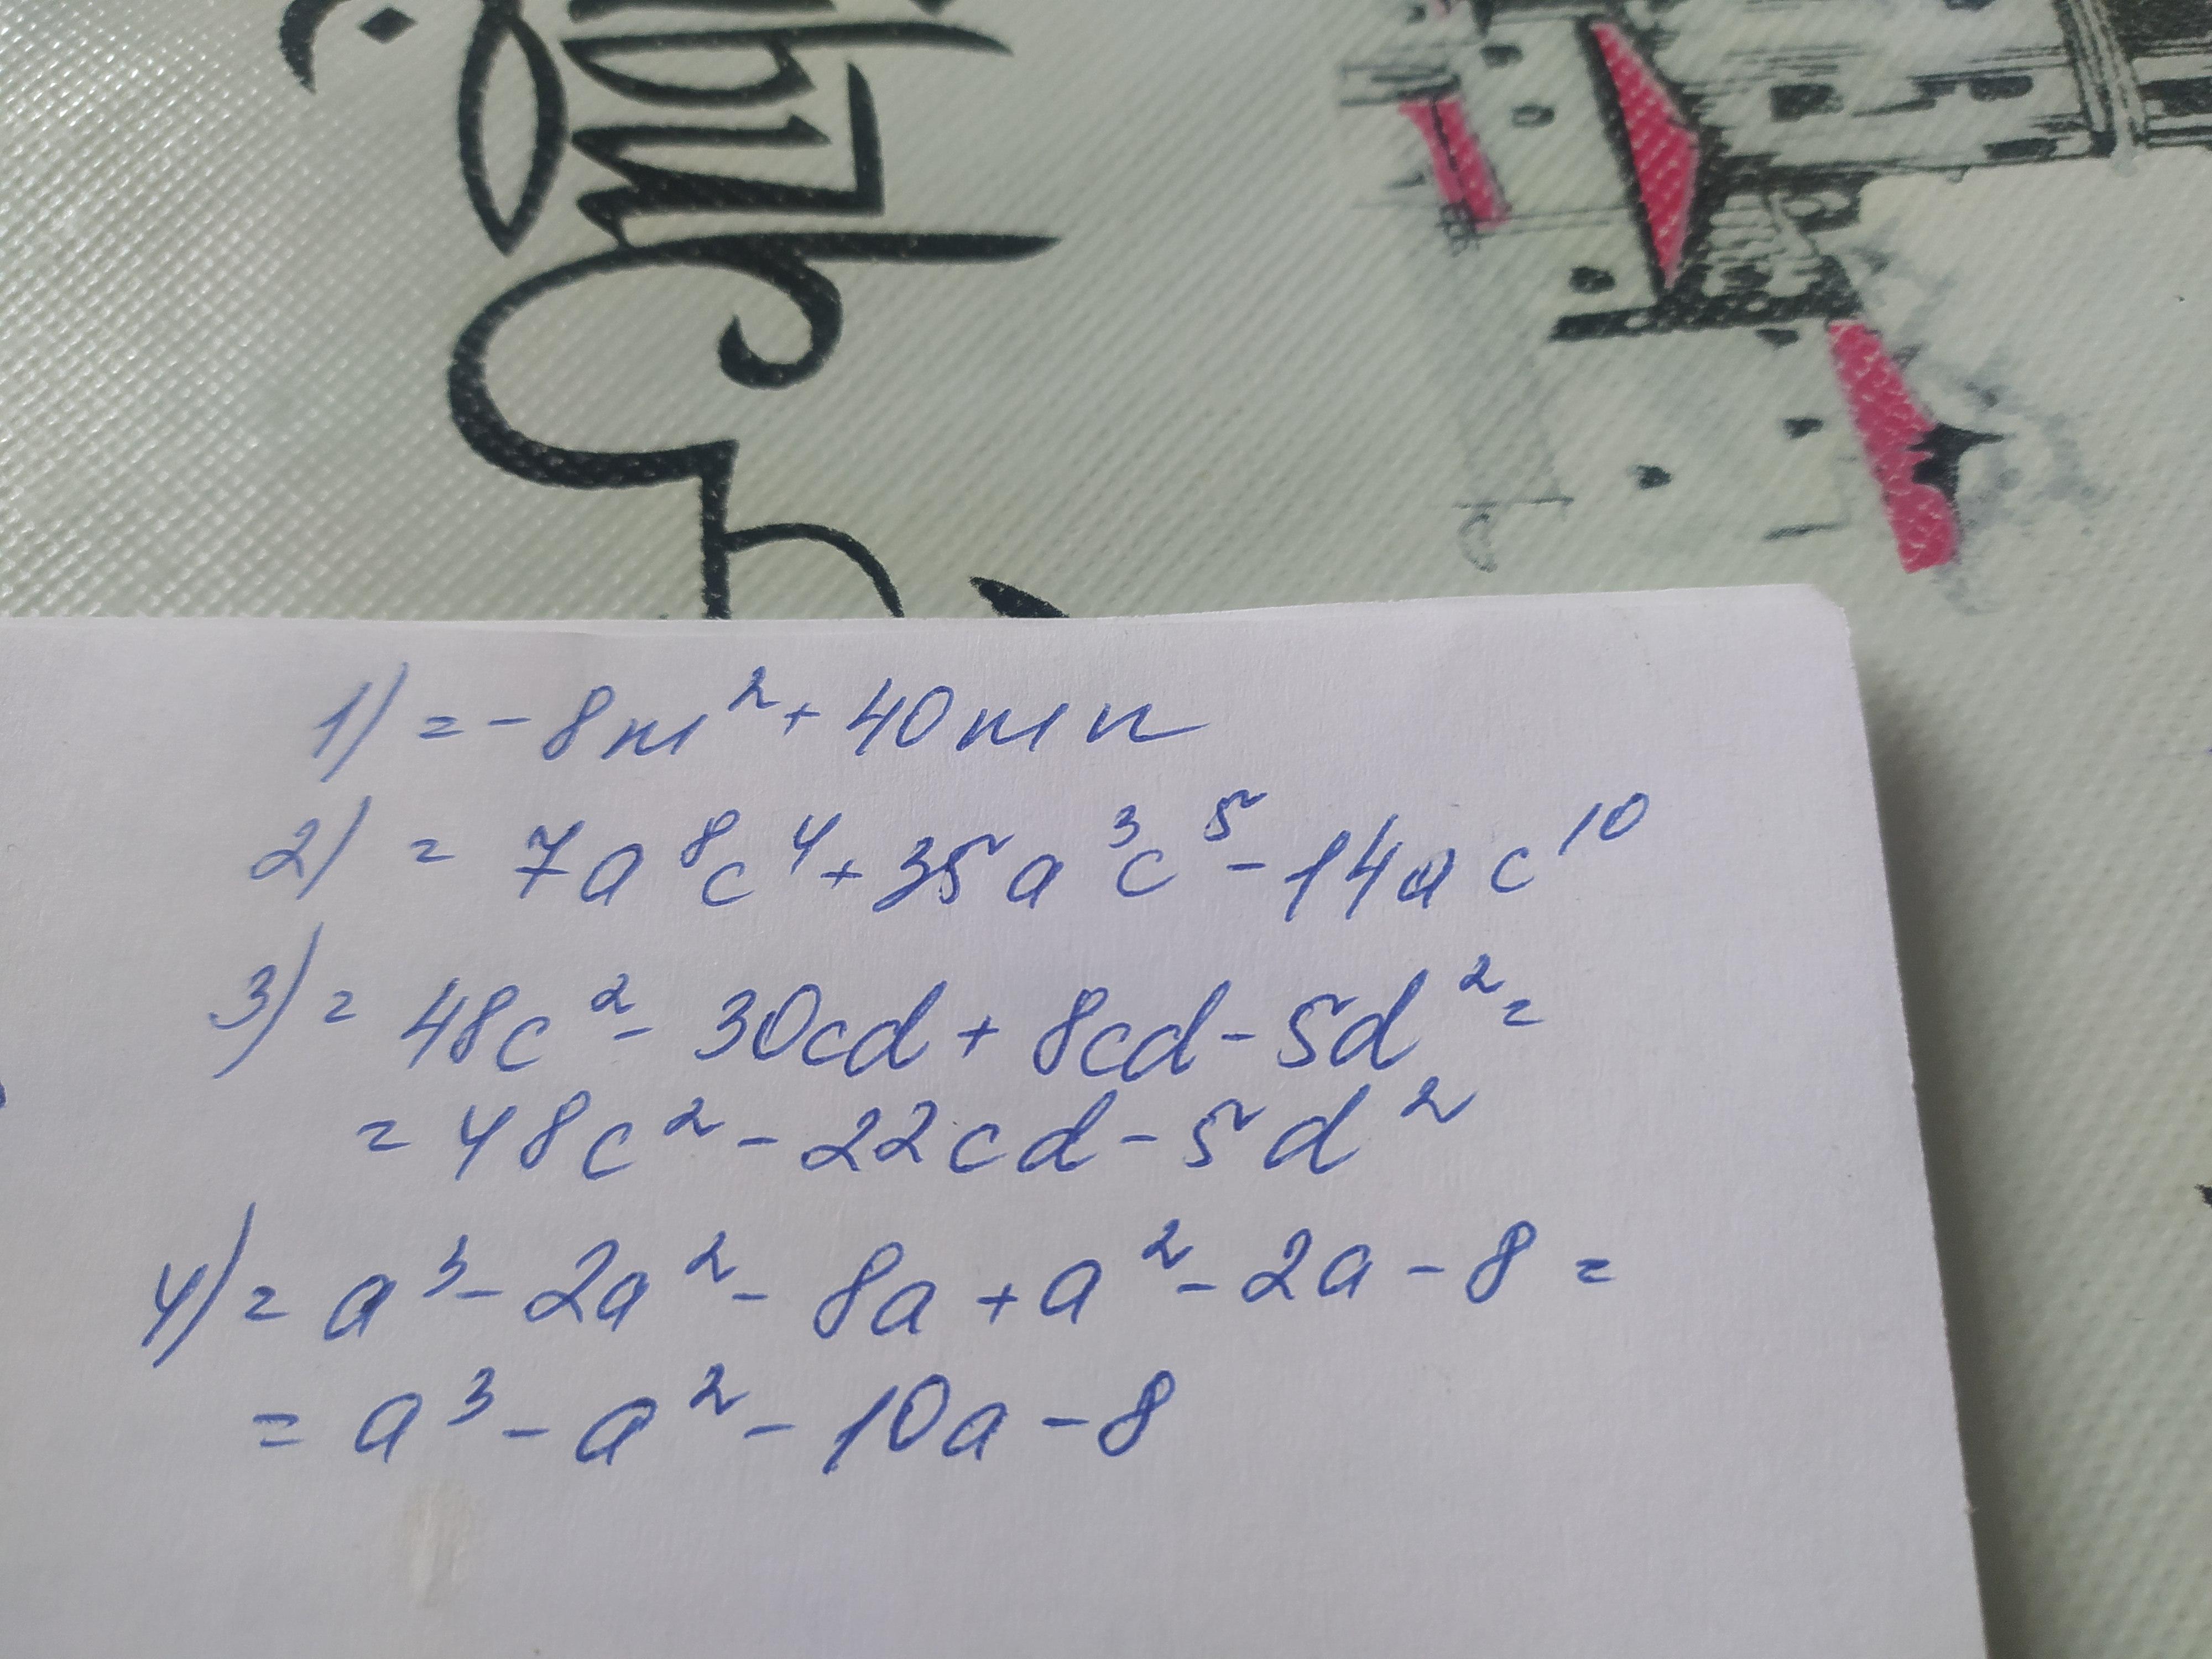 1) = - 8m² + 40mn
2) = 7a⁸c⁴ + 35a³c⁵ - 14ac¹⁰
3) = 48c² - 30cd + 8cd - 5d² =
= 48c² - 22cd - 5d²
4) = a³ - 2a² - 8a + a² - 2a - 8 =
= a³ - a² - 10a - 8